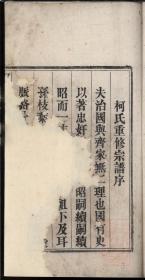 柯氏重修宗譜序
夫治國與齊家無二理也國有史
以著忠奸 昭嗣續嗣續
昭而一 祖下及耳
孫枝
脈絡